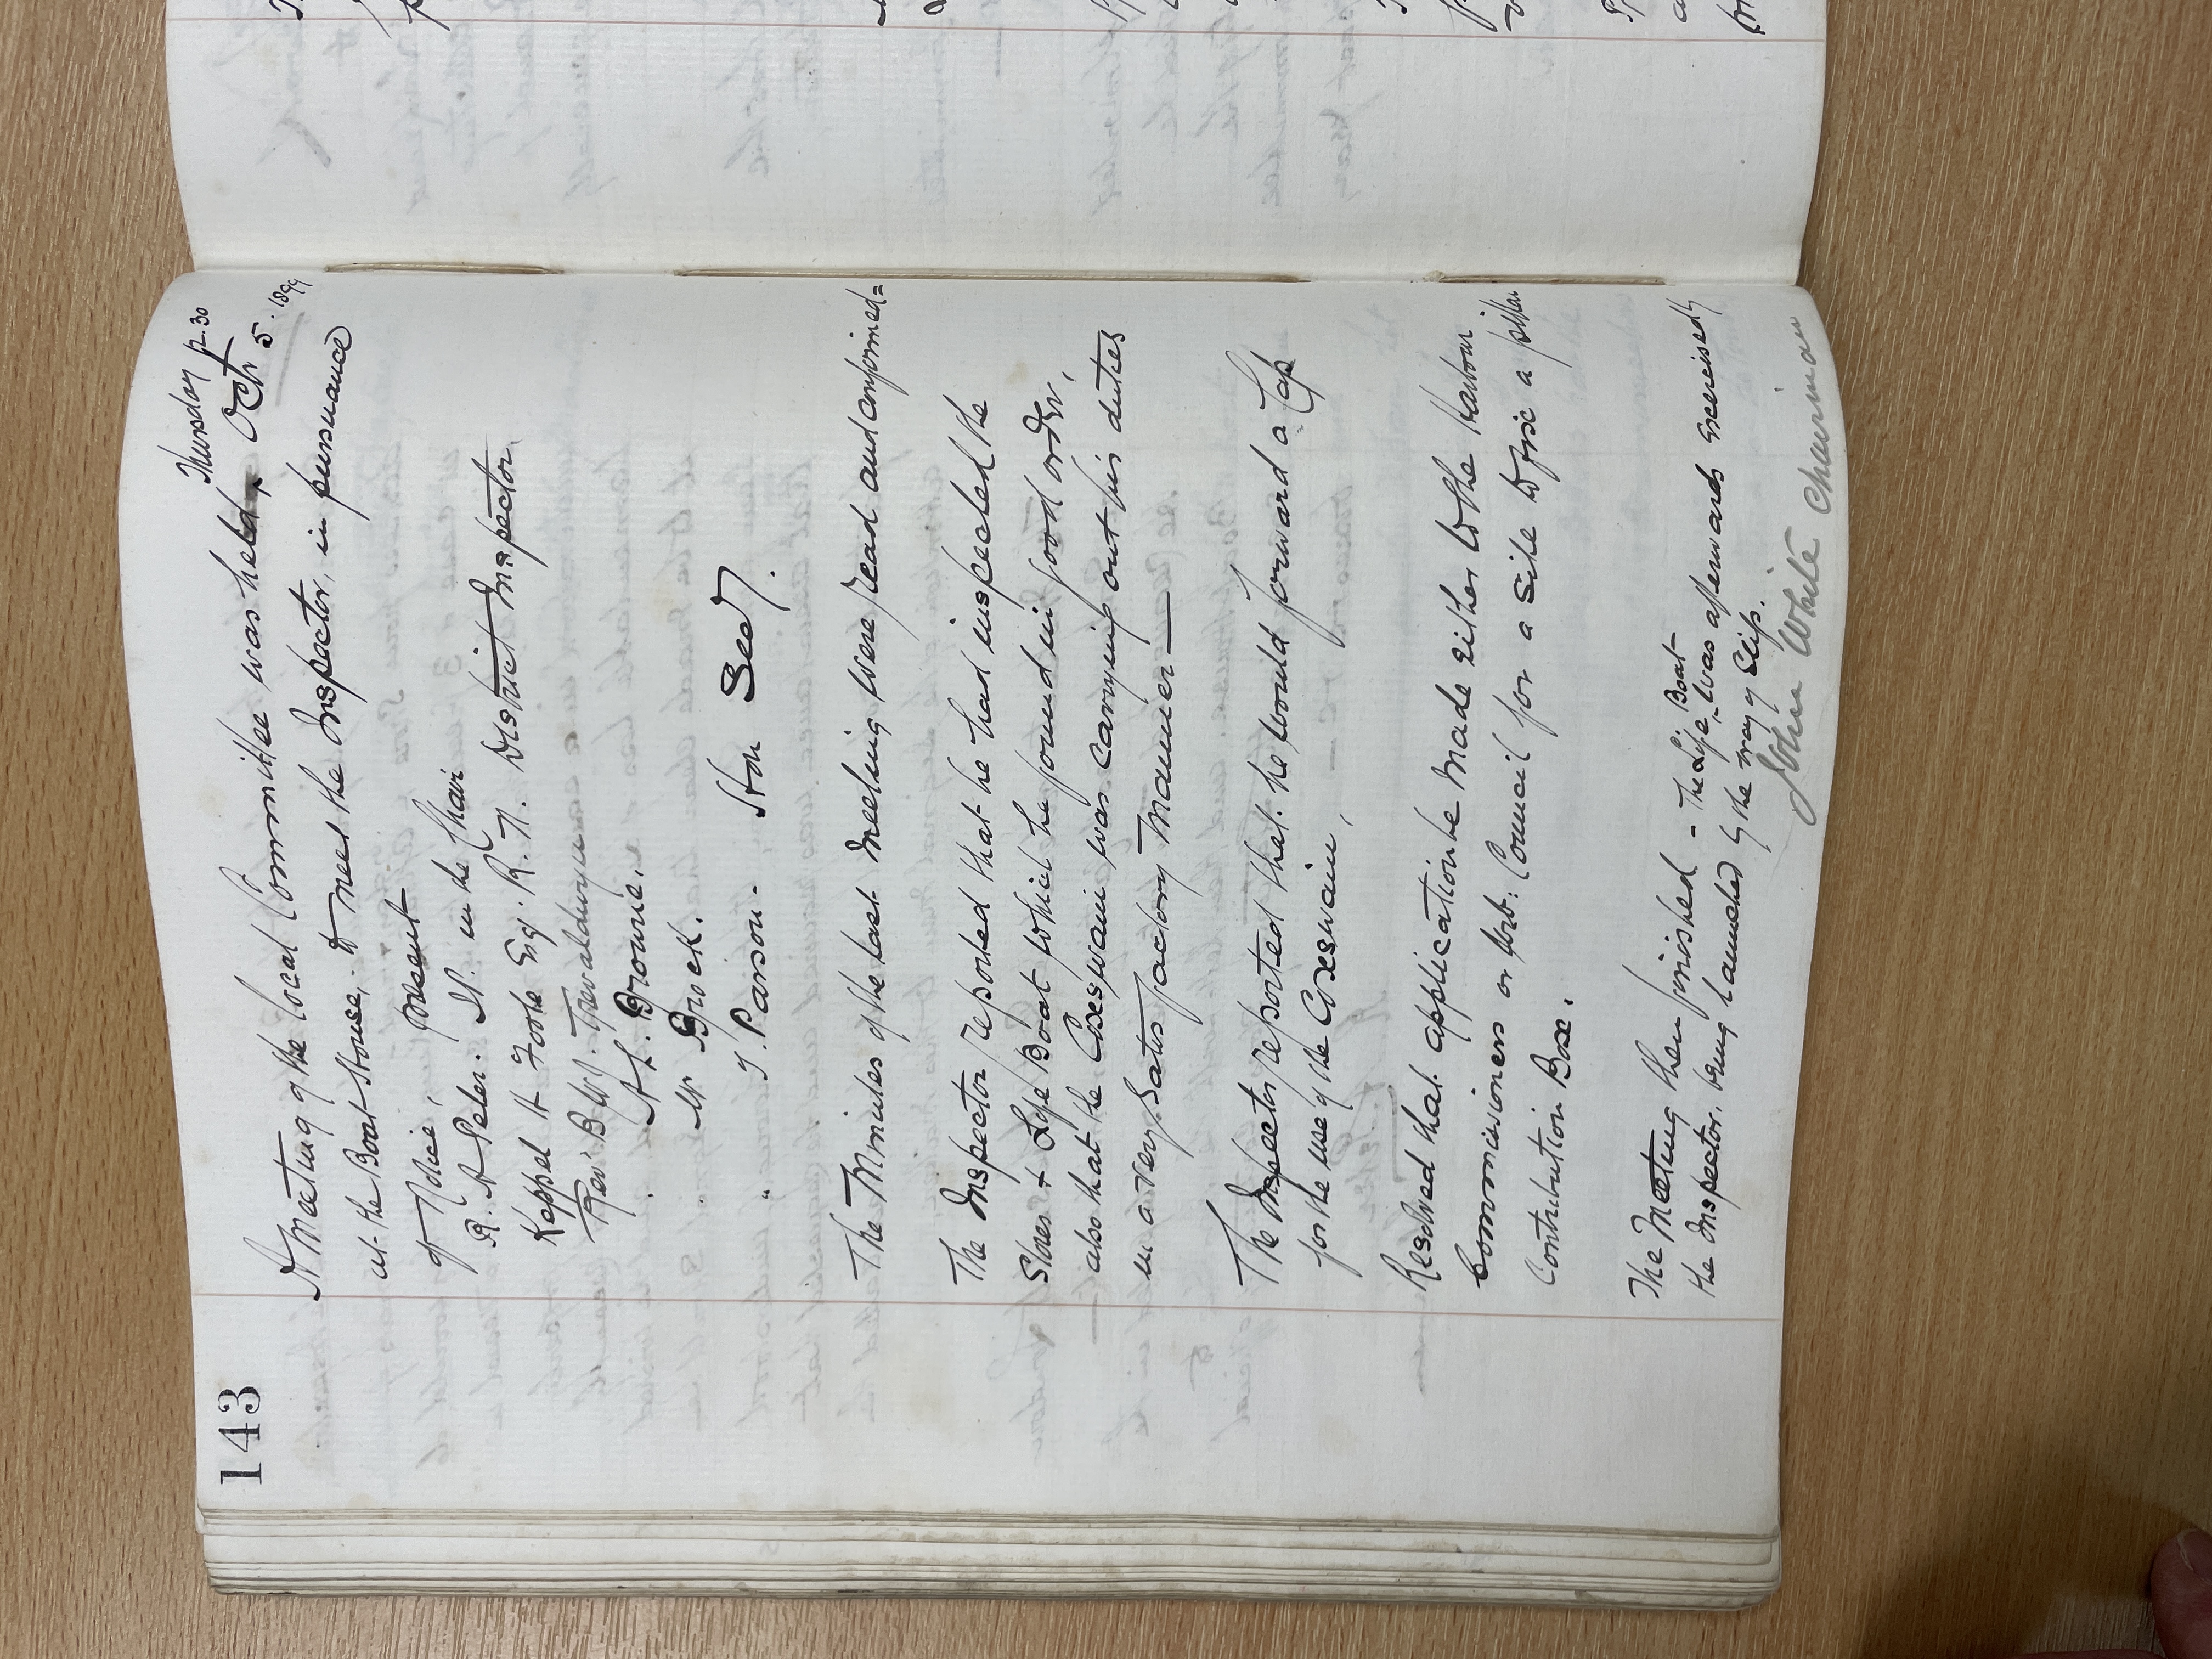 143
Thursday 12.30
A Meeting of the Local Committee was held ^ Oct 5. 1899
at the Boat House, to meet the Inspector, in pursuance
of Notice, present
R. A Peter. in the Chair
Keppel H Foote Esq. R. N. District Inspector
Rev. B W J. Trevaldwyn
A. L. Browne.
Mr Brock.
" J. Parson - Hon Secy.
The Minutes of the last Meeting were read and confirmed =
The Inspector reported that he had inspected the
Stores & Life Boat which he found in good order,
also that the Coxswain was carrying out his duties
in a very Satisfactory Manner —
The Inspector reported that he would forward a Cap
for the use of the Coxswain,
Resolved that application be made either to the Harbour
Commissioners or Urb: Council for a site to fix a pillar
Contribution Box.
The Meeting then finished - The Life Boat ^ was afterwards exercised by
the Inspector, being launched by the way of Slip.
John White Chairman